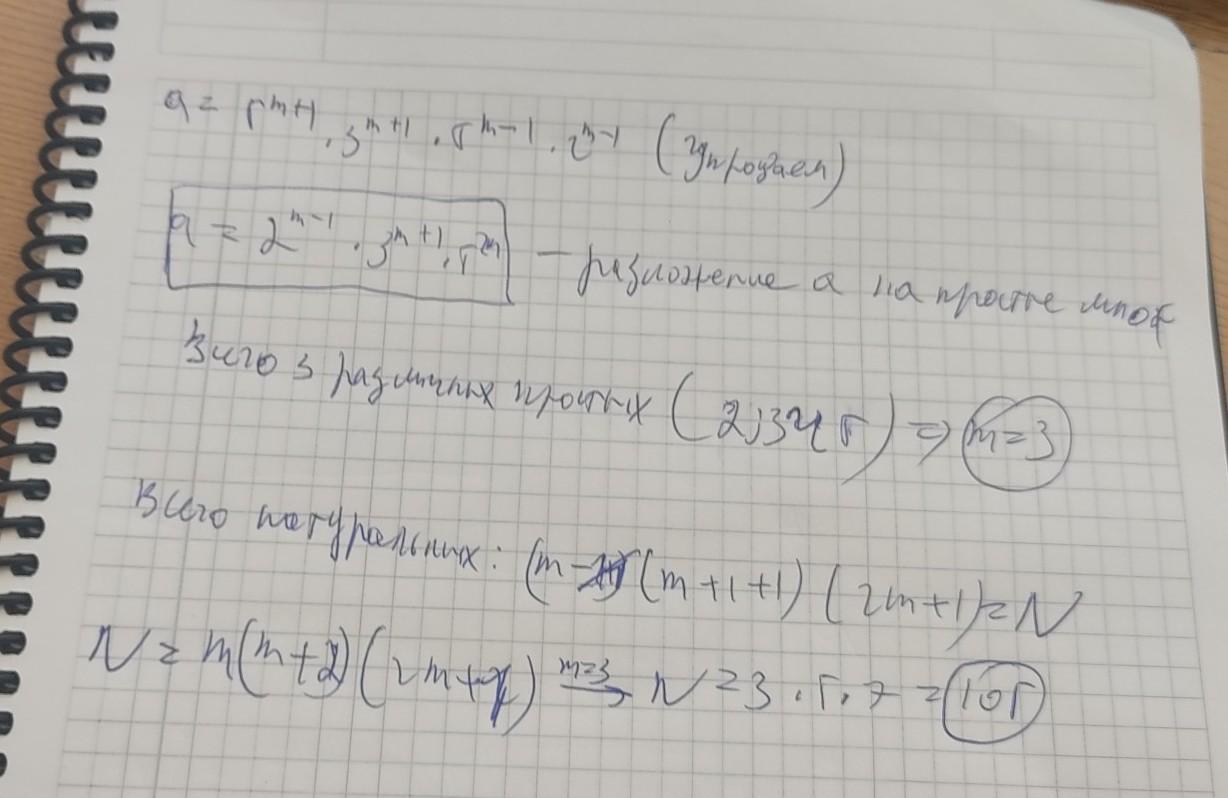 a = 5^{m+1} · 3^{m+1} · 5^{m-1} · 2^{m-1} (упрощаем)
a = 2^{m-1} · 3^{m+1} · 5^{2m} — разложение a на простые множ
Всего 3 различных простых (2, 3 и 5) ⇒ m=3
Всего натуральных: (m (m+1+1) (2m+1) = N
N = m(m+2)(2m+1) m=3 → N = 3 · 5 · 7 = 105